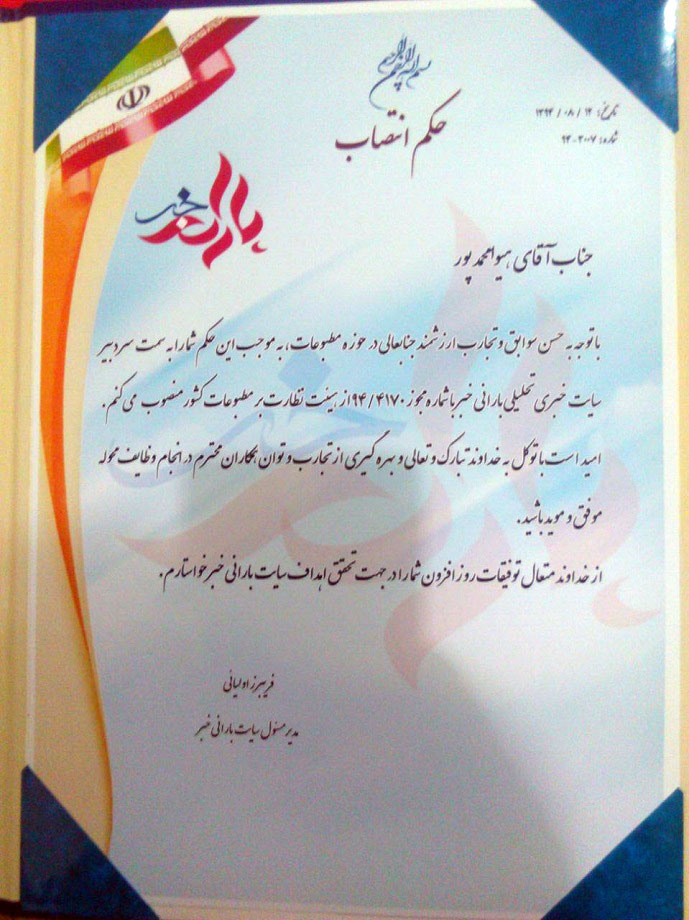 بسم الله الرحمن الرحیم
تاریخ: ۱۳۹۴/۰۸/۱۴
شماره: ۹۴-۳۰۰۷
حکم انتصاب
بارانی خبر
جناب آقای هیوا محمدپور
باتوجه به حسن سوابق و تجارب ارزشمند جنابعالی در حوزه مطبوعات، به موجب این حکم شما را به سمت سردبیر
سایت خبری تحلیلی بارانی خبر با شماره مجوز ۹۴/۴۱۷۰ از هیئت نظارت بر مطبوعات کشور منصوب می کنم.
امید است با توکل به خداوند تبارک و تعالی و بهره گیری از تجارب و توان همکاران محترم در انجام وظایف محوله
موفق و موید باشید.
از خداوند متعال توفیقات روزافزون شما را در جهت تحقق اهداف سایت بارانی خبر خواستارم.
فریبرز اولیائی
مدیر مسئول سایت بارانی خبر